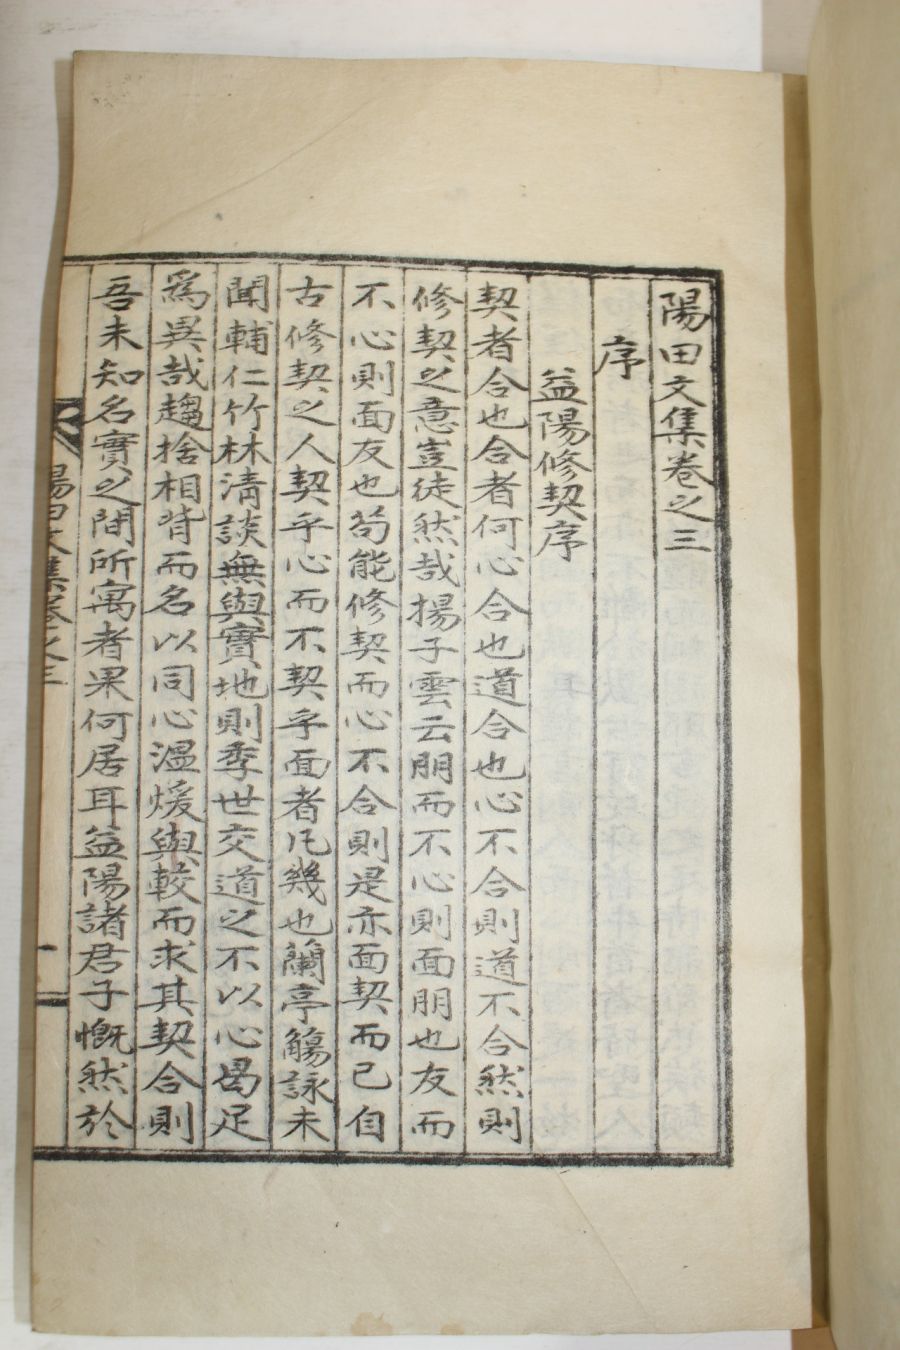 陽田文集卷之三
序
益陽修契序
契者合也合者何心合也道合也心不合則道不合然則
修契之意豈徒然哉揚子雲云朋而不心則面朋也友而
不心則面友也苟能修契而心不合則是亦面契而已自
古修契之人契乎心而不契乎面者凡幾也蘭亭觴詠未
聞輔仁竹林淸談無與實地則季世交道之不以心曷足
爲異哉趨捨相背而名以同心溫煖與較而求其契合則
吾未知名實之間所寓者果何居耳益陽諸君子慨然於
陽田文集卷之三
一